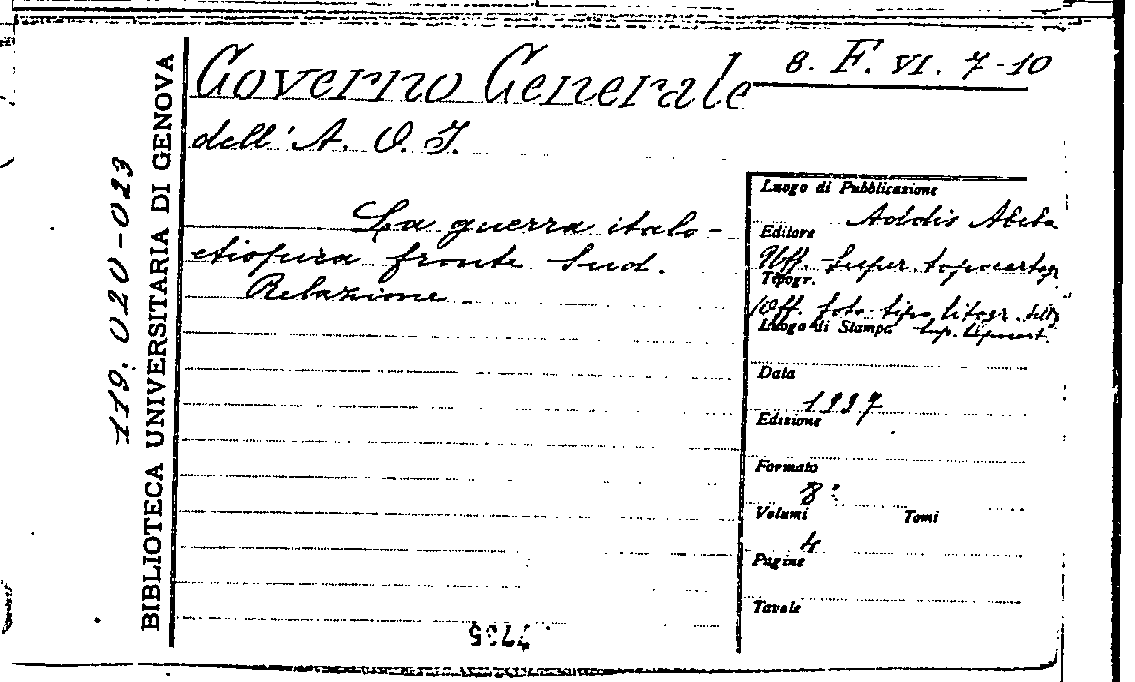 Governo Generale
8. F. VI. 7-10
dell' A. O. I.
La guerra italo-
etiopica fronte Sud.
Relazione
Luogo di Pubblicazione
Addis Abeba
Editore
Uff. Super. topocartogr
Topogr.
Off. foto-tipo litogr. della
Luogo di Stampa Sup. topocart.
Data
1937
Edizione
Formato
8°
Volumi Tomi
4
Pagine
Tavole
BIBLIOTECA UNIVERSITARIA DI GENOVA
119.020-023